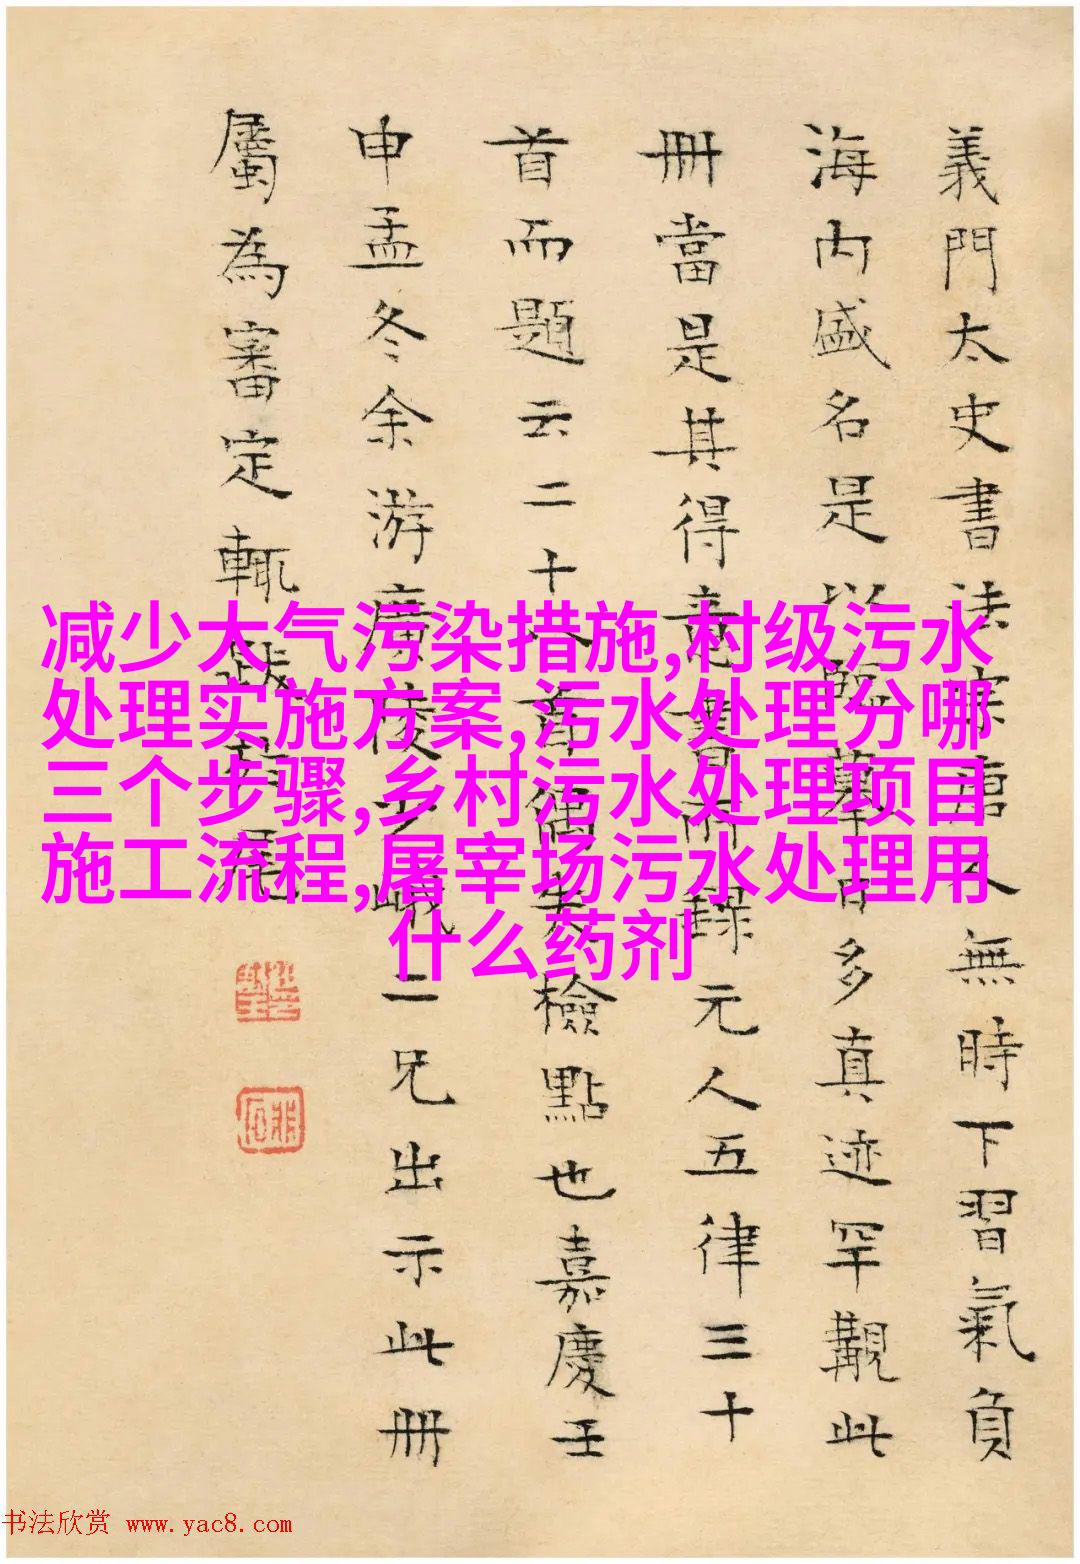 義門太史書法宗唐人無時下習氣負
海内盛名是以臨摹日多真迹罕覯此
冊當是其得意書而録元人五律三十
首而題云二十八首偶失檢點也嘉慶壬
申孟冬余游廣陵少峨二兄出示此冊
屬為審定輒跋尾
减少大气污染措施,村级污水
处理实施方案,污水处理分哪
三个步骤,乡村污水处理项目
施工流程,屠宰场污水处理用
什么药剂
书法欣赏 www.yac8.com